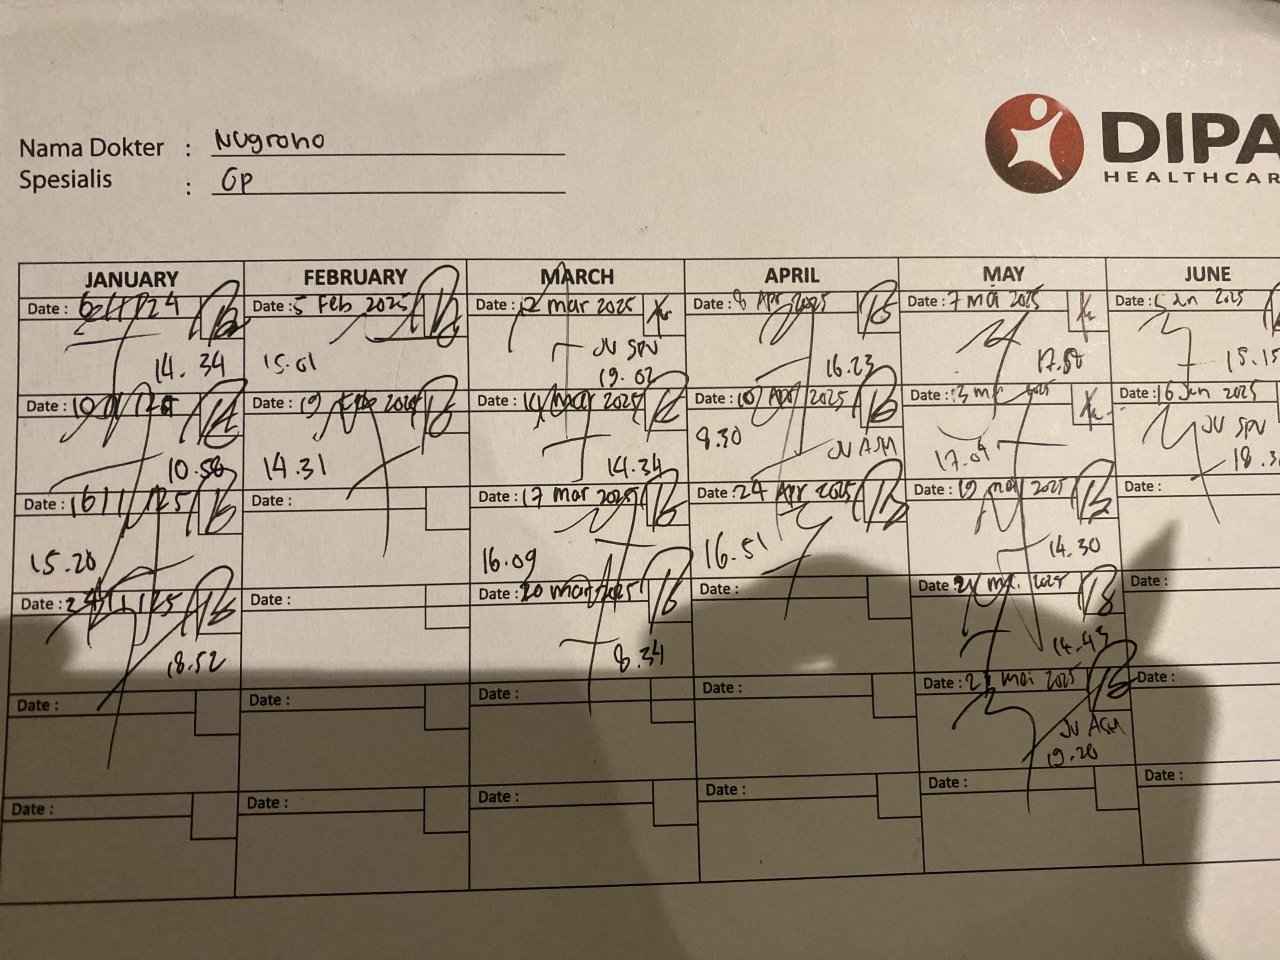 Nama Dokter : Nugroho
Spesialis : GP
DIPA
HEALTHCAR
JANUARY FEBRUARY MARCH APRIL MAY JUNE
Date : Date : 5 Feb 2025 Date : 12 Mar 2025 Date : 8 Apr 2025 Date : 7 Mei 2025 Date : Jun 2025
14.34 15.01 JV SPV 19.02 16.23 15.15
Date : Date : 19 Feb 2025 Date : 2025 Date : 10 Apr 2025 Date : 2025 Date : 16 Jun 2025
10.58 14.31 14.34 8.30 JV ASM 17.09 JV SPV
Date : 16/1/25 Date : Date : 17 Mar 2025 Date : 24 Apr 2025 Date : 19 Mei 2025 Date :
15.20 16.09 16.51 14.30
Date : Date : Date : 20 Mar 2025 Date : Date : Mei 2025 Date :
18.52 8.34 14.43
Date : Date : Date : Date : Date : Mei 2025 Date :
JV ASM
19.20
Date : Date : Date : Date : Date : Date :